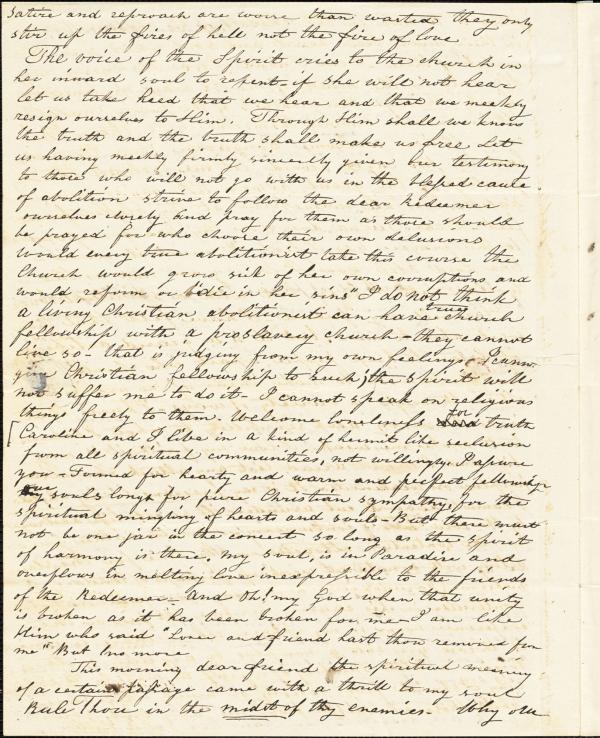 Satire and reproach are worse than wasted they only
stir up the fires of hell not the fire of love
The voice of the Spirit cries to the church in
her inward soul to repent - if she will not hear
let us take heed that we hear and that we meekly
resign ourselves to Him. Through Him shall we know
the truth and the truth shall make us free Let
us having meekly firmly sincerely given our testimony
to those who will not go with us in the blessed cause
of abolition strive to follow the dear Redeemer
ourselves closely and pray for them as those should
be prayed for who choose their own delusions
Would every true abolitionist take this course the
Church would grow sick of her own corruptions and
would reform or "die in her sins" I do not think
a living Christian abolitionist can have true church
fellowship with a proslavery church - they cannot
live so - that is judging from my own feelings. I cannot
give Christian fellowship to such, the spirit will
not suffer me to do it - I cannot speak on religious
things freely to them. Welcome loneliness for truth
[Caroline and I live in a kind of hermit like seclusion
from all spiritual communities, not willingly, I assure
you - Formed for hearty and warm and perfect fellowship
our souls long for pure Christian sympathy, for the
spiritual mingling of hearts and souls - But there must
not be one jar in the concert so long as the spirit
of harmony is there, my soul, is in Paradise and
overflows in melting love inexpressible to the friends
of the Redeemer - And Oh! my God when that unity
is broken as it has been broken for me - I am like
Him who said "Lover and friend hast thou removed from
me" But no more
This morning dear friend the spiritual meaning
of a certain passage came with a thrill to my soul
Rule Thou in the midst of thy enemies - Why